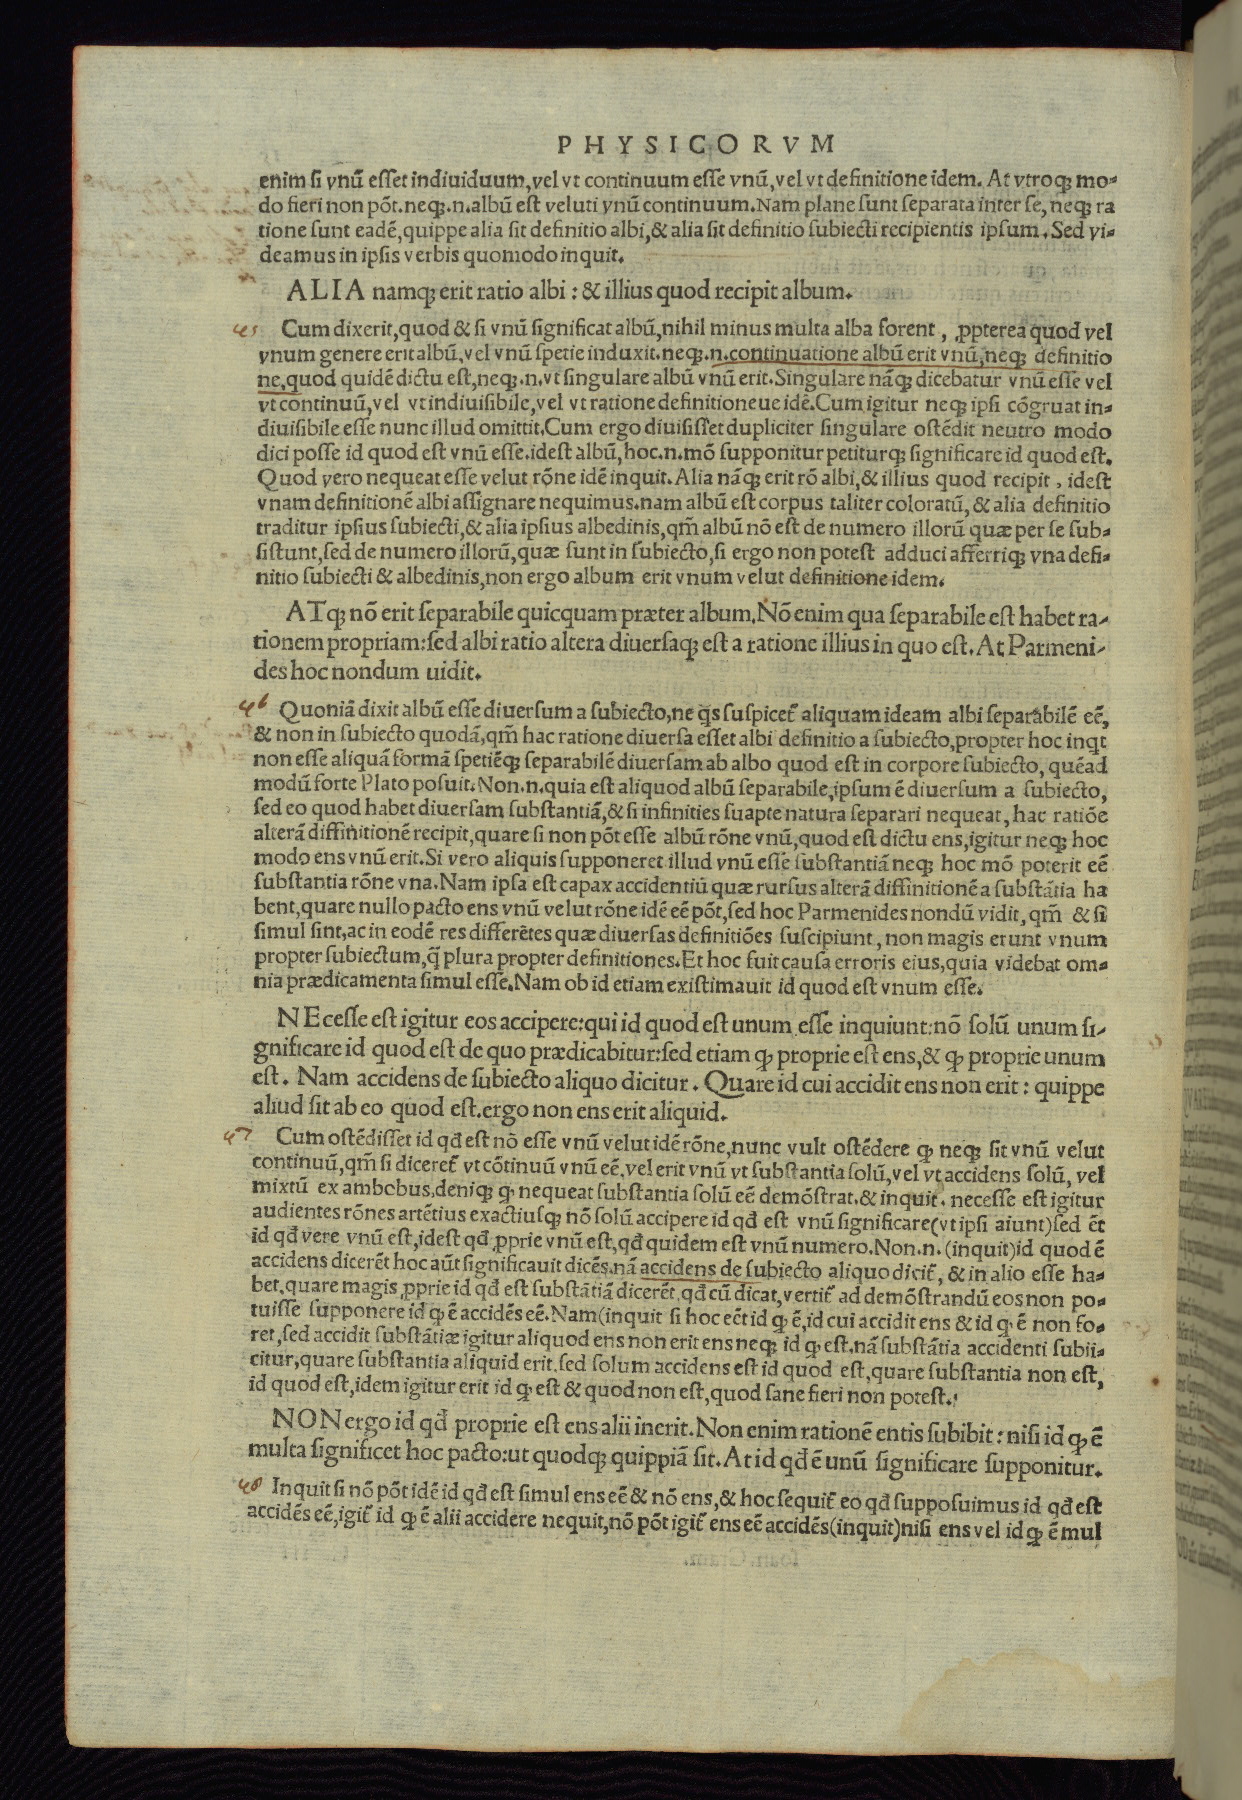 PHYSICORVM
enim si vnũ esset indiuiduum, vel vt continuum esse vnũ, vel vt definitione idem. At vtroq; mo-
do fieri non põt. neq;.n. albũ est veluti vnũ continuum. Nam plane sunt separata inter se, neq; ra
tione sunt eadẽ, quippe alia sit definitio albi, & alia sit definitio subiecti recipientis ipsum. Sed vi-
deamus in ipsis verbis quomodo inquit.
ALIA namq; erit ratio albi: & illius quod recipit album.
45 Cum dixerit, quod & si vnũ significat albũ, nihil minus multa alba forent, ꝓpterea quod vel
vnum genere erit albũ, vel vnũ spetie induxit. neq;.n. continuatione albũ erit vnũ, neq; definitio
ne, quod quidẽ dictu est, neq;.n. vt singulare albũ vnũ erit. Singulare nãq; dicebatur vnũ esse vel
vt continuũ, vel vt indiuisibile, vel vt ratione definitioneue idẽ. Cum igitur neq; ipsi cõgruat in-
diuisibile esse nunc illud omittit. Cum ergo diuisisset dupliciter singulare ostẽdit neutro modo
dici posse id quod est vnũ esse. idest albũ, hoc.n. mõ supponitur petiturq; significare id quod est.
Quod vero nequeat esse velut rõne idẽ inquit. Alia nãq; erit rõ albi, & illius quod recipit, idest
vnam definitionẽ albi assignare nequimus. nam albũ est corpus taliter coloratũ, & alia definitio
traditur ipsius subiecti, & alia ipsius albedinis, qm̃ albũ nõ est de numero illorũ quæ per se sub-
sistunt, sed de numero illorũ, quæ sunt in subiecto, si ergo non potest adduci afferriq; vna defi-
nitio subiecti & albedinis, non ergo album erit vnum velut definitione idem.
ATq; nõ erit separabile quicquam præter album. Nõ enim qua separabile est habet ra-
tionem propriam: sed albi ratio altera diuersaq; est a ratione illius in quo est. At Parmeni-
des hoc nondum uidit.
46 Quoniã dixit albũ esse diuersum a subiecto, ne q̃s suspicet̃ aliquam ideam albi separabilẽ eẽ,
& non in subiecto quodã, qm̃ hac ratione diuersa esset albi definitio a subiecto, propter hoc inqt
non esse aliquã formã spetiẽq; separabilẽ diuersam ab albo quod est in corpore subiecto, quẽad
modũ forte Plato posuit. Non.n. quia est aliquod albũ separabile, ipsum ẽ diuersum a subiecto,
sed eo quod habet diuersam substantiã, & si infinities suapte natura separari nequeat, hac ratiõe
alterã diffinitionẽ recipit, quare si non põt esse albũ rõne vnũ, quod est dictu ens, igitur neq; hoc
modo ens vnũ erit. Si vero aliquis supponeret illud vnũ esse substantiã neq; hoc mõ poterit eẽ
substantia rõne vna. Nam ipsa est capax accidentiũ quæ rursus alterã diffinitionẽ a substãtia ha
bent, quare nullo pacto ens vnũ velut rõne idẽ eẽ põt, sed hoc Parmenides nondũ vidit, qm̃ & si
simul sint, ac in eodẽ res differẽtes quæ diuersas definitiões suscipiunt, non magis erunt vnum
propter subiectum, q̃ plura propter definitiones. Et hoc fuit causa erroris eius, quia videbat om-
nia prædicamenta simul esse. Nam ob id etiam existimauit id quod est vnum esse.
NEcesse est igitur eos accipere: qui id quod est unum esse inquiunt: nõ solũ unum si-
gnificare id quod est de quo prædicabitur: sed etiam ꝙ proprie est ens, & ꝙ proprie unum
est. Nam accidens de subiecto aliquo dicitur. Quare id cui accidit ens non erit: quippe
aliud sit ab eo quod est. ergo non ens erit aliquid.
47 Cum ostẽdisset id qđ est nõ esse vnũ velut idẽ rõne, nunc vult ostẽdere ꝙ neq; sit vnũ velut
continuũ, qm̃ si diceret̃ vt cõtinuũ vnũ eẽ, vel erit vnũ vt substantia solũ, vel vt accidens solũ, vel
mixtũ ex ambobus, deniq; ꝙ nequeat substantia solũ eẽ demõstrat. & inquit. necesse est igitur
audientes rõnes artẽtius exactiusq; nõ solũ accipere id qđ est vnũ significare (vt ipsi aiunt) sed ẽt
id qđ vere vnũ est, idest qđ ꝓprie vnũ est, qđ quidem est vnũ numero. Non.n. (inquit) id quod ẽ
accidens dicerẽt hoc aũt significauit dicẽs. nã accidens de subiecto aliquo dicit̃, & in alio esse ha-
bet. quare magis ꝓprie id qđ est substãtiã dicerẽt. qđ cũ dicat, vertit̃ ad demõstrandũ eos non po-
tuisse supponere id ꝙ ẽ accidẽs eẽ. Nam (inquit si hoc eẽt id ꝙ ẽ, id cui accidit ens & id ꝙ ẽ non fo-
ret, sed accidit substãtiæ igitur aliquod ens non erit ens neq; id ꝙ est. nã substãtia accidenti subii-
citur, quare substantia aliquid erit. sed solum accidens est id quod est, quare substantia non est,
id quod est, idem igitur erit id ꝙ est & quod non est, quod sane fieri non potest.
NON ergo id qđ proprie est ens alii inerit. Non enim rationẽ entis subibit: nisi id ꝙ ẽ
multa significet hoc pacto: ut quodq; quippiã sit. At id qđ ẽ unũ significare supponitur.
48 Inquit si nõ põt idẽ id qđ est simul ens eẽ & nõ ens, & hoc sequit̃ eo qđ supposuimus id qđ est
accidẽs eẽ, igit̃ id ꝙ ẽ alii accidere nequit, nõ põt igit̃ ens eẽ accidẽs (inquit) nisi ens vel id ꝙ ẽ mul